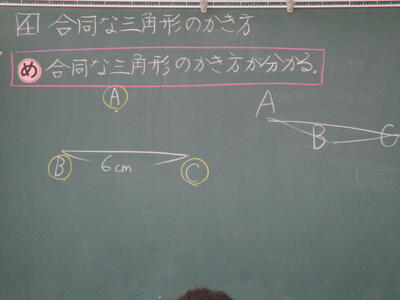 4 合同な三角形のかき方
め 合同な三角形のかき方が分かる。
A
A
B
C
B
6cm
C